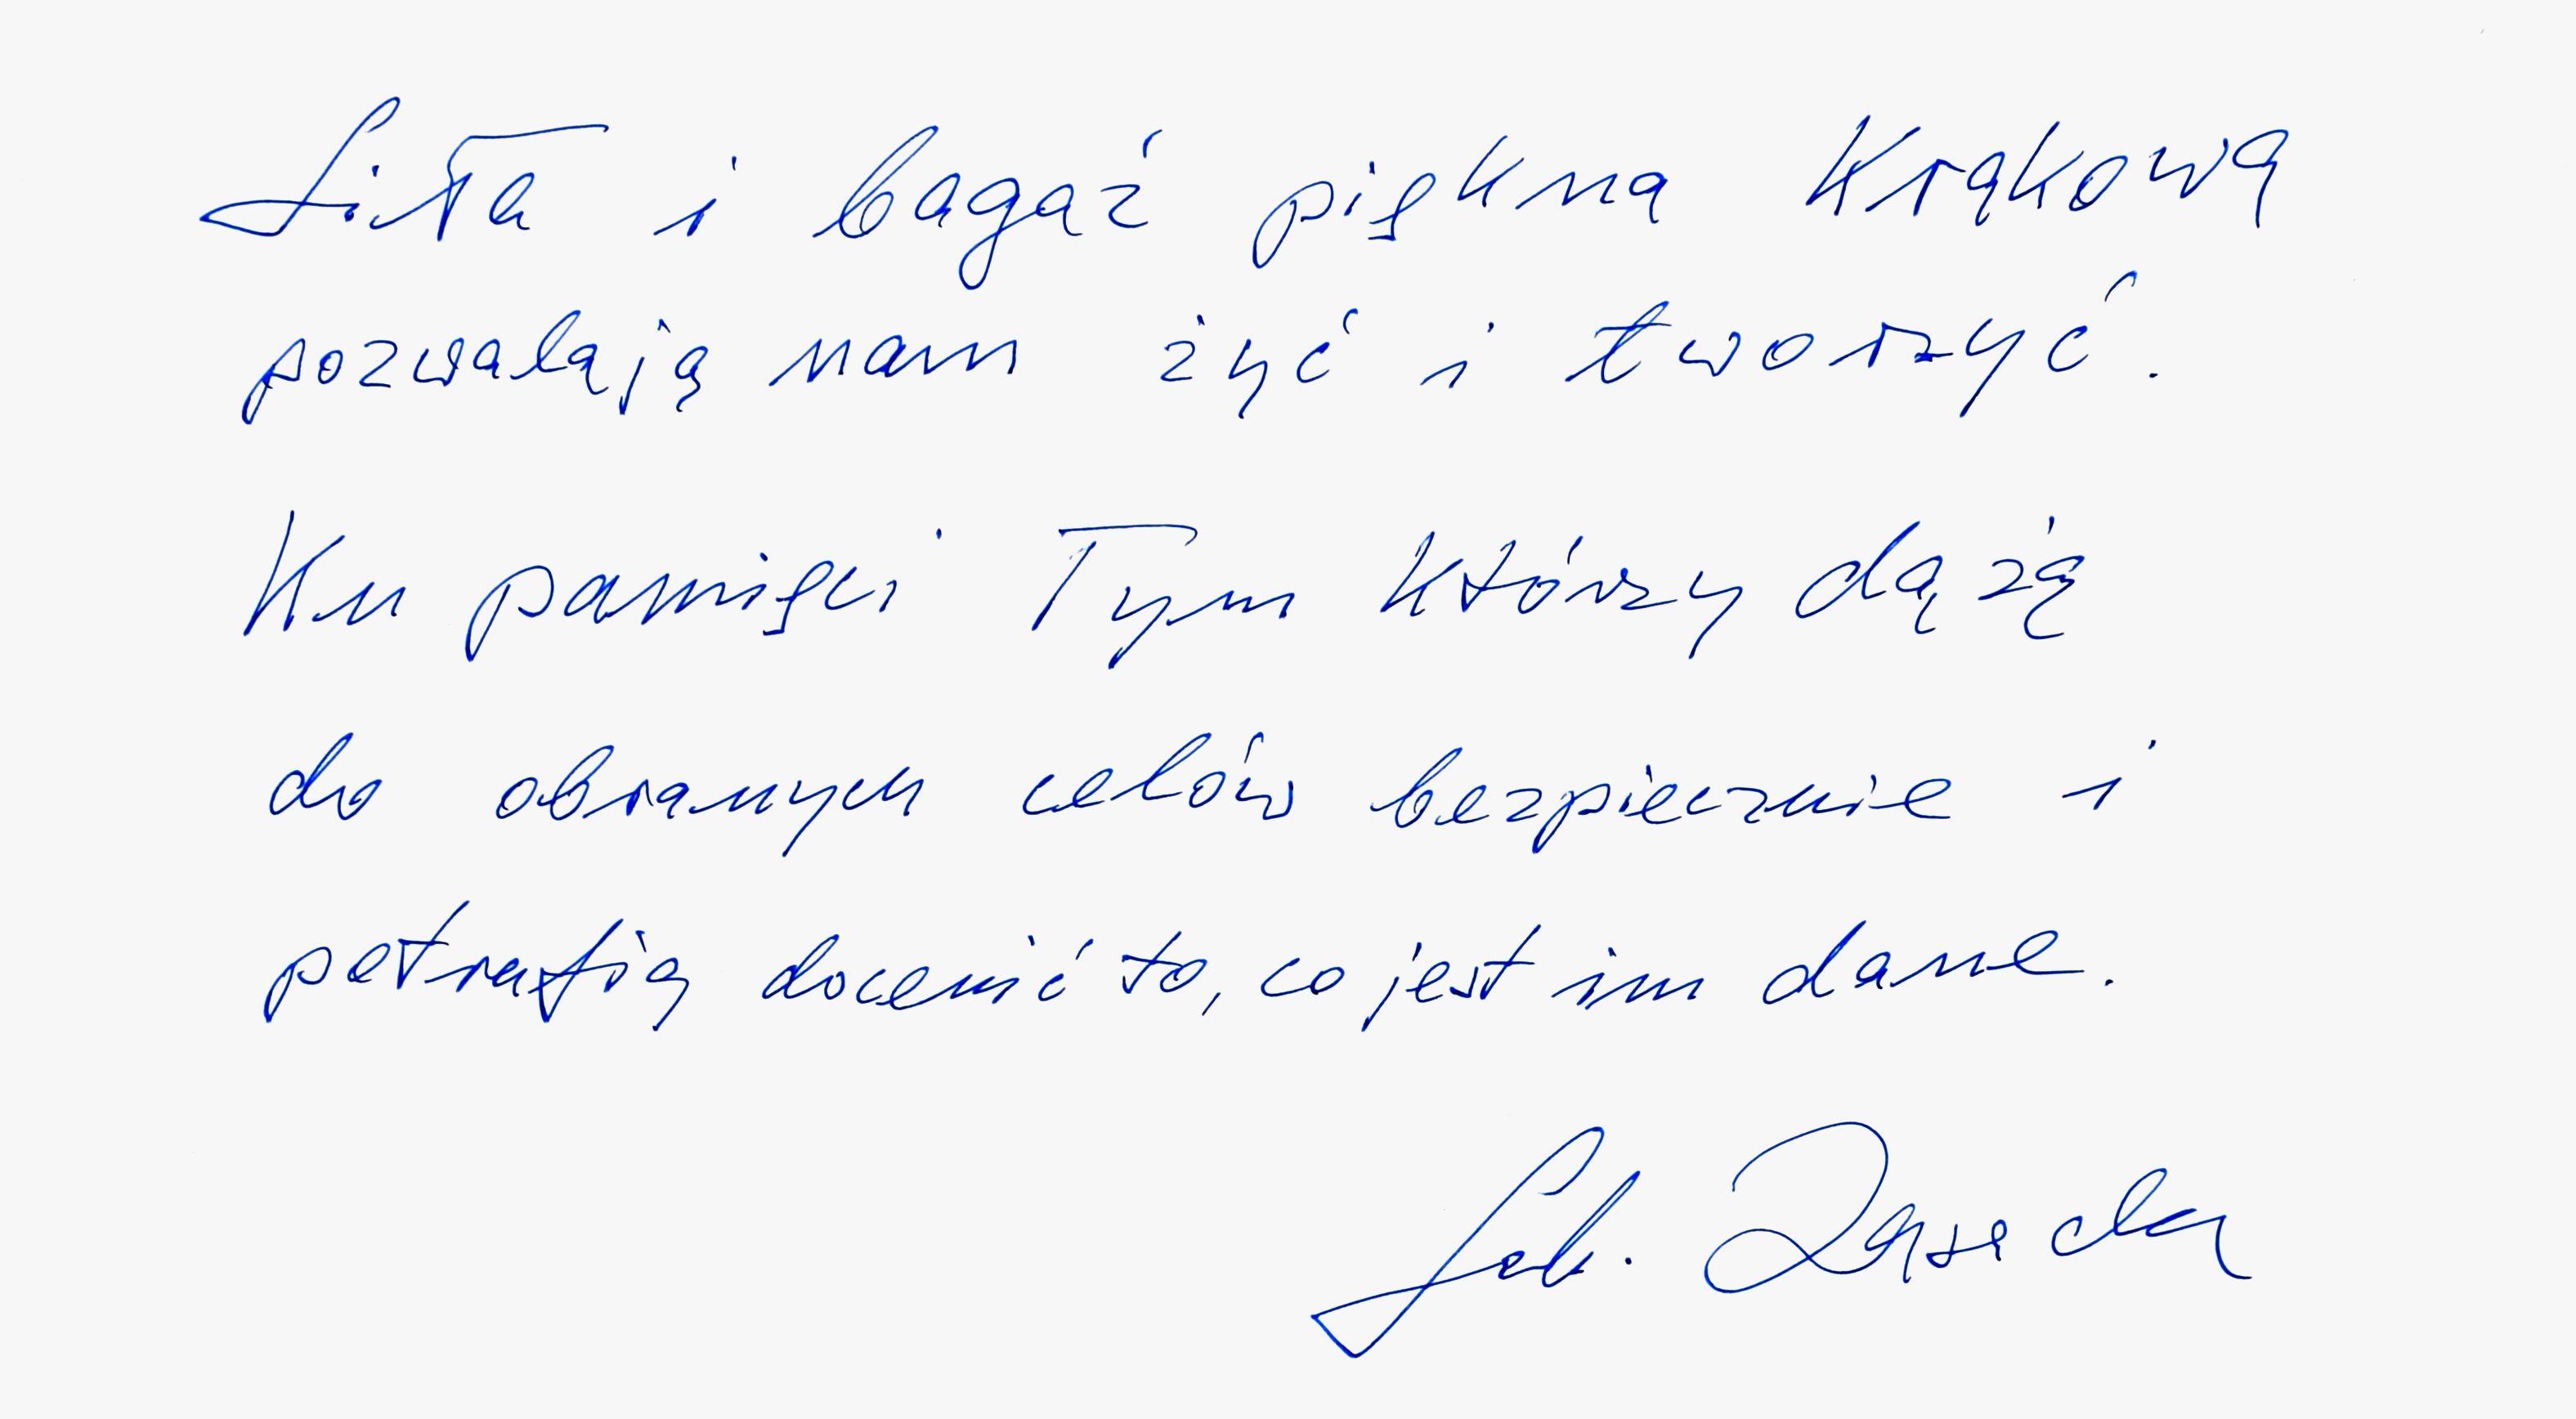 Siła i bagaż piękna Krakowa
pozwalają nam żyć i tworzyć.
Ku pamięci Tym którzy dążą
do obranych celów bezpiecznie i
potrafią docenić to, co jest im dane.
Sob. Zasada